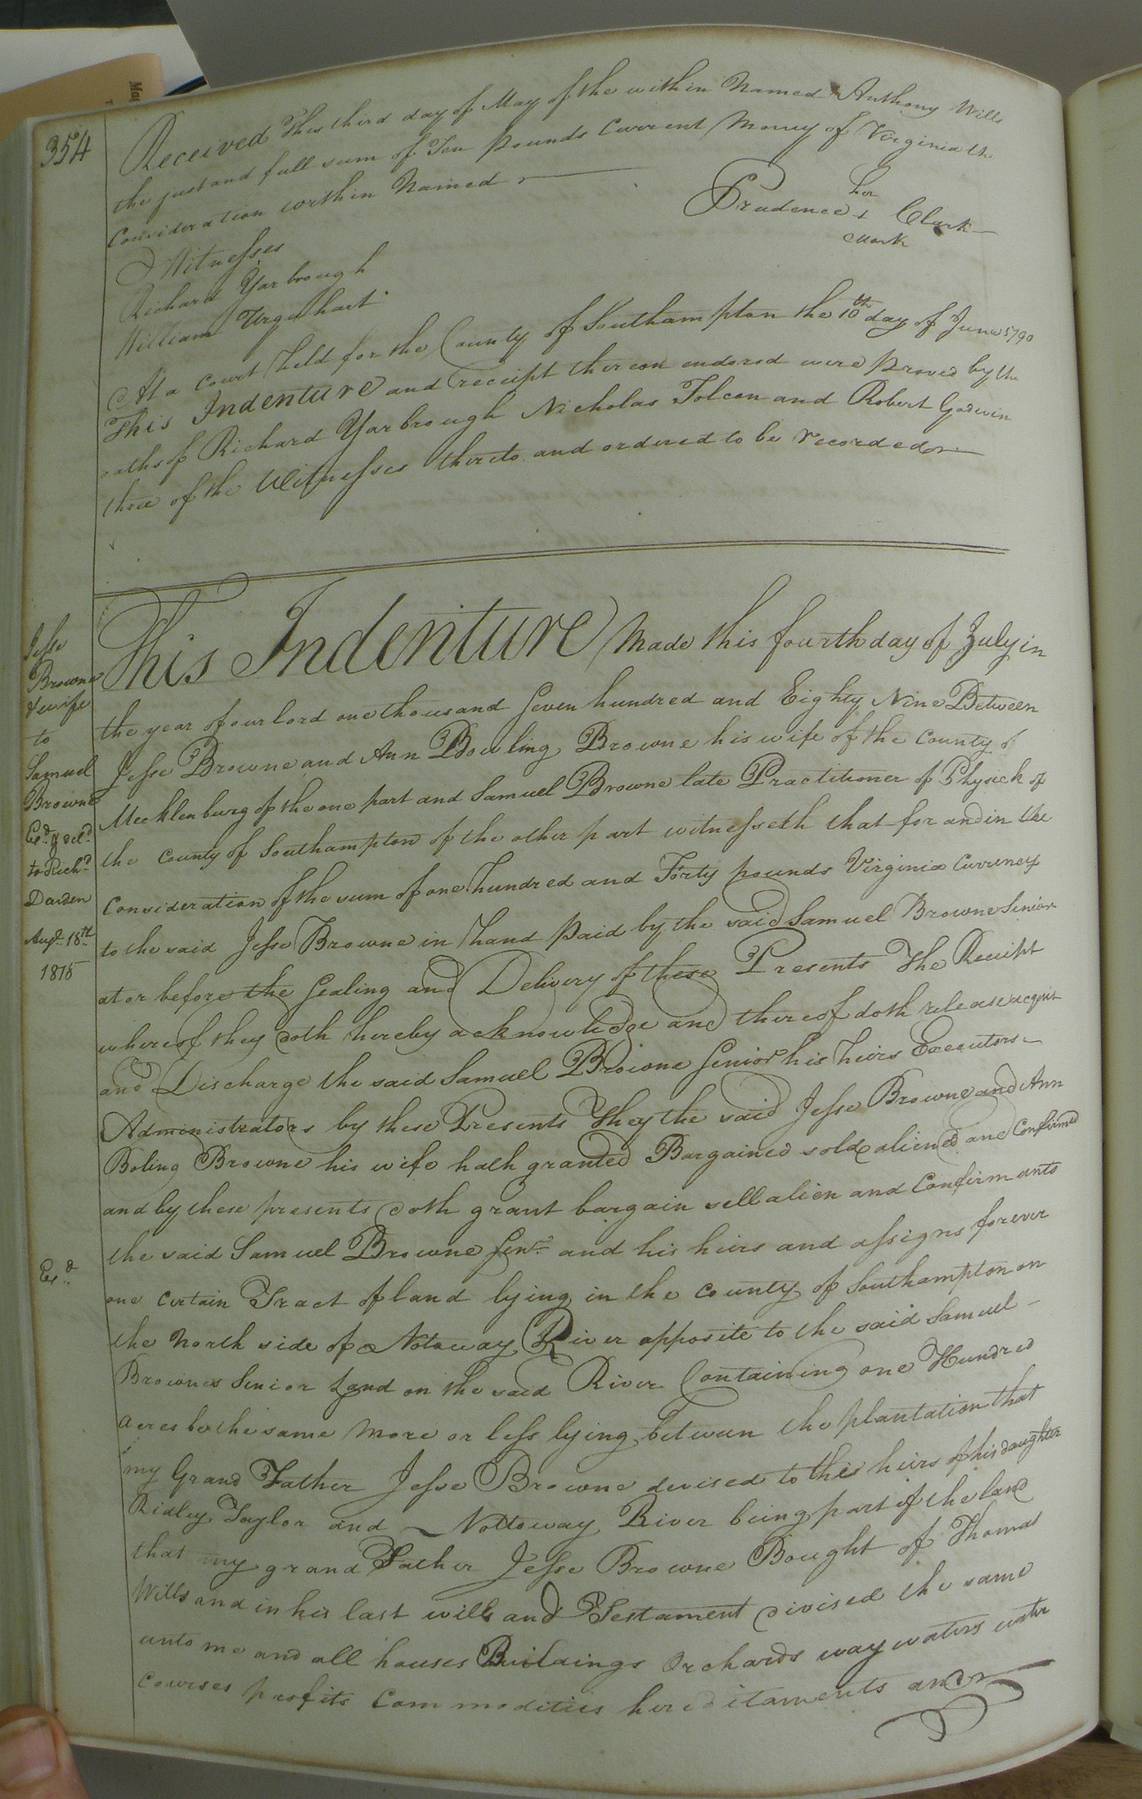 354
Received This third day of May of the within Named Anthony Wills
the just and full sum of Ten Pounds Current Money of Virginia th
Consideration within Named
her
Prudence + Clark
Mark
Witnesses
Richard Yarbrough
William Urquhart
At a Court Held for the County of Southampton the 10th day of June 1790
This Indenture and receipt thereon endorsd were proved by the
oaths of Richard Yarbrough Nicholas Folcon and Robert Godwin
three of the Witnesses thereto and ordered to be recorded
Jesse
Browne
& wife
to
Samuel
Browne
Exd. & deld.
to Richd.
Darden
Augt. 18th
1815
This Indenture Made this fourth day of July in
the year of our lord one thousand Seven hundred and Eighty Nine Between
Jesse Browne and Ann Bowling Browne his wife of the County of
Mecklenburg of the one part and Samuel Browne late Practitioner of Physick of
the County of Southampton of the other part witnesseth that for and in the
Consideration of the sum of one hundred and Forty pounds Virginia Currency
to the said Jesse Browne in Hand paid by the said Samuel Browne Senior
at or before the Sealing and Delivery of these Presents The Receipt
whereof they doth hereby acknowledge and thereof doth release acquit
and Discharge the said Samuel Browne Senior his heirs Executors
Administrators by these Presents They the said Jesse Browne and Ann
Boling Browne his wife hath granted Bargained sold aliened and Confirmed
and by these presents doth grant bargain sell alien and Confirm unto
the said Samuel Browne Senr. and his heirs and assigns forever
Exd.
one certain Tract of land lying in the County of Southampton on
the North side of Notoway River opposite to the said Samuel
Brownes Senior Land on the said River Containing one Hundred
acres be the same more or less lying between the plantation that
my Grand Father Jesse Browne devised to the heirs of his daughter
Ridley Taylor and Nottoway River being part of the land
that my grand Father Jesse Browne Bought of Thomas
Wills and in his last will and Testament divised the same
unto me and all houses Buildings Orchards way waters water
courses profits Commodities hereditaments and